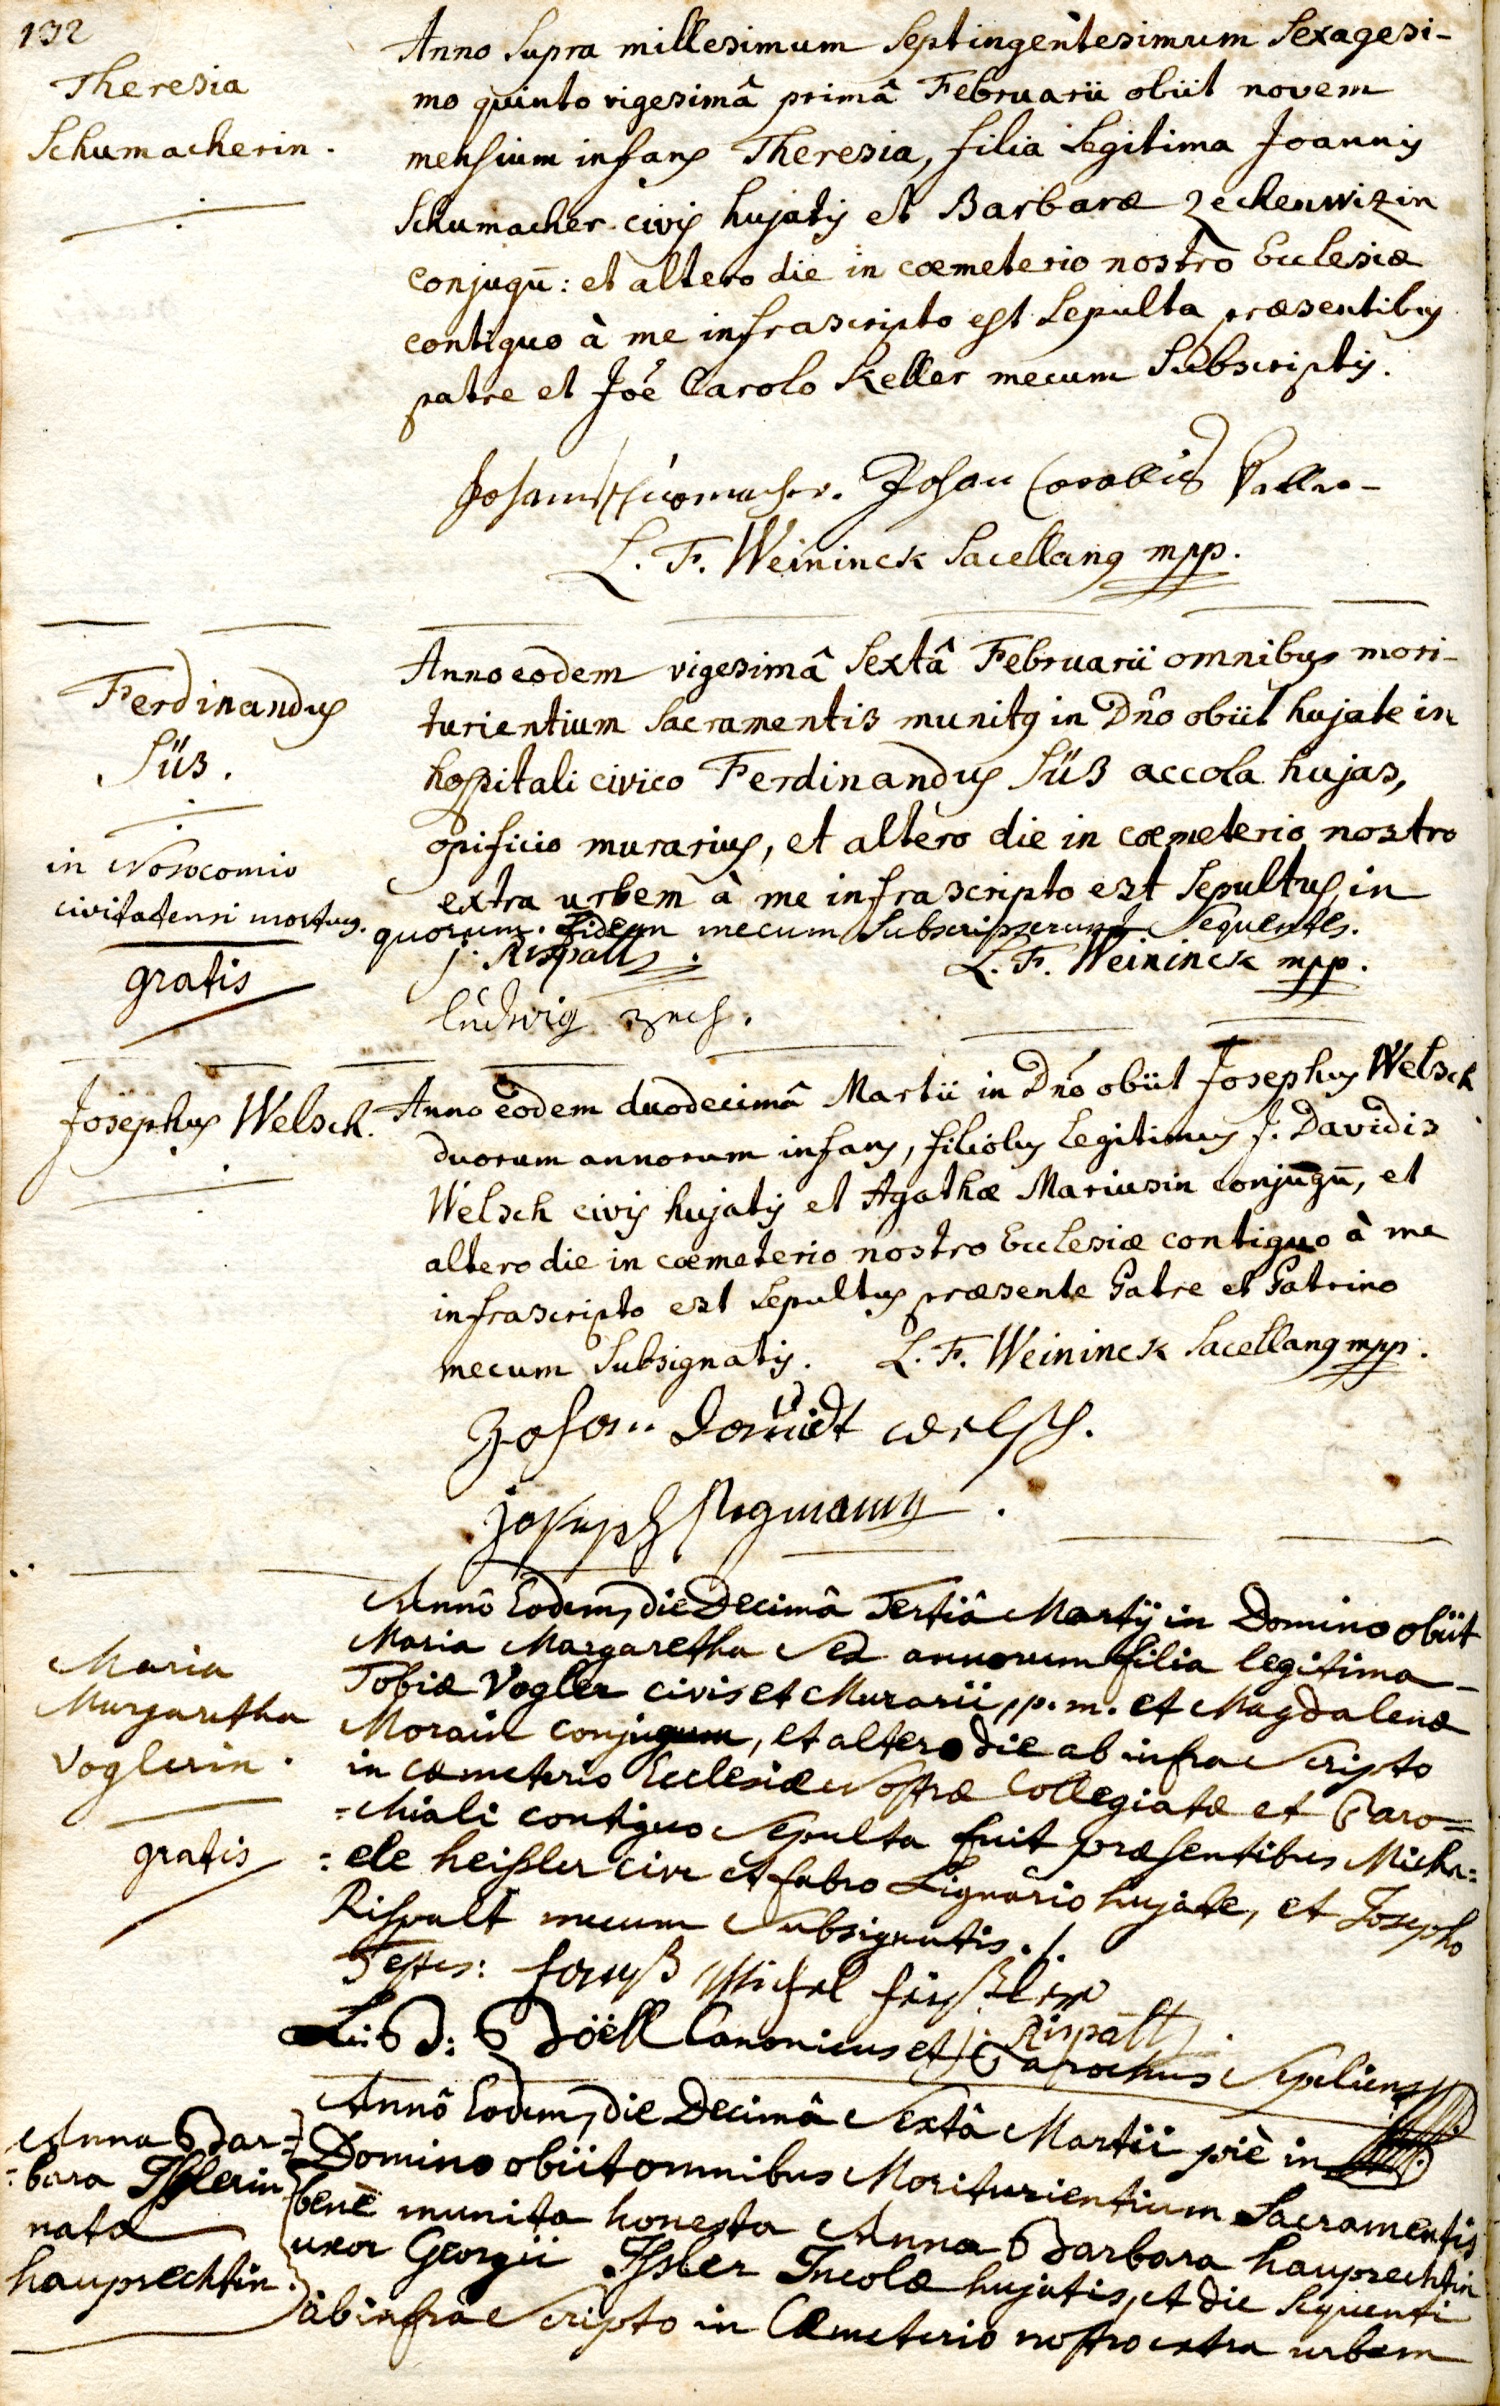 132
Theresia
Schumacherin.
Anno supra millesimum septingentesimum sexagesi-
mo quinto vigesimâ primâ Februarii obiit novem
mensium infans Theresia, filia legitima Joannis
Schumacher civis hujatis et Barbaræ Zeckenwizin
conjugū: et altero die in cœmeterio nostro Ecclesiæ
contiguo à me infrascripto est sepulta præsentibus
patre et Joē Carolo Keller mecum subscriptis.
Johann Schuomacher. Johan Carollus Keller
L. F. Weininck Sacellanus mpp.
Ferdinandus
Süs.
in Nosocomio
civitatensi mortuus.
gratis
Anno eodem vigesimâ sextâ Februarii omnibus mori-
turientium sacramentis munitus in Dño obiit hujate in
hospitali civico Ferdinandus Süs accola hujas,
opificio murarius, et altero die in cœmeterio nostro
extra urbem à me infrascripto est sepultus, in
quorum fidem mecum subscripserunt sequentes.
j. Rispalt.
L. F. Weininck mpp.
ludwig zech.
Josephus Welsch.
Anno eodem duodecimâ Martii in Dño obiit Josephus Welsch
duorum annorum infans, filiolus legitimus J. Davidis
Welsch civis hujatis et Agathæ Mariusin conjugū, et
altero die in cœmeterio nostro Ecclesiæ contiguo à me
infrascripto est sepultus præsente Patre et Patrino
mecum subsignatis. L. F. Weininck Sacellanus mpp.
Johan Davidt Welsch.
joseph Stegmann.
Maria
Margaretha
Voglerin.
gratis
Annô Eodem, die Decimâ Tertiâ Martij in Domino obiit
Maria Margaretha sex annorum filia legitima
Tobiæ Vogler civis et Murarii, p. m. et Magdalenæ
Morain conjugum, et altero die ab infra scripto
in cœmeterio Ecclesiæ Nostræ Collegiatæ et Paro=
=chiali contiguo sepulta fuit præsentibus Micha=
=ele heissler cive et fabro Lignario hujate, et Josepho
Rispalt mecum subsignatis./.
Testes: Michel
j: Rispalt
B: Böell Canonicus et Parochus sepeliens
Anna Bar=
=bara Isslerin
nata
hauprechtin.
Annô Eodem, die Decimâ sextâ Martii piè in
Domino obiit omnibus Moriturientium Sacramentis
benè munita honesta Anna Barbara hauprechtin
uxor Georgii Issler Incolæ hujatis, et die sequenti
ab infra scripto in Cœmeterio nostro extra urbem